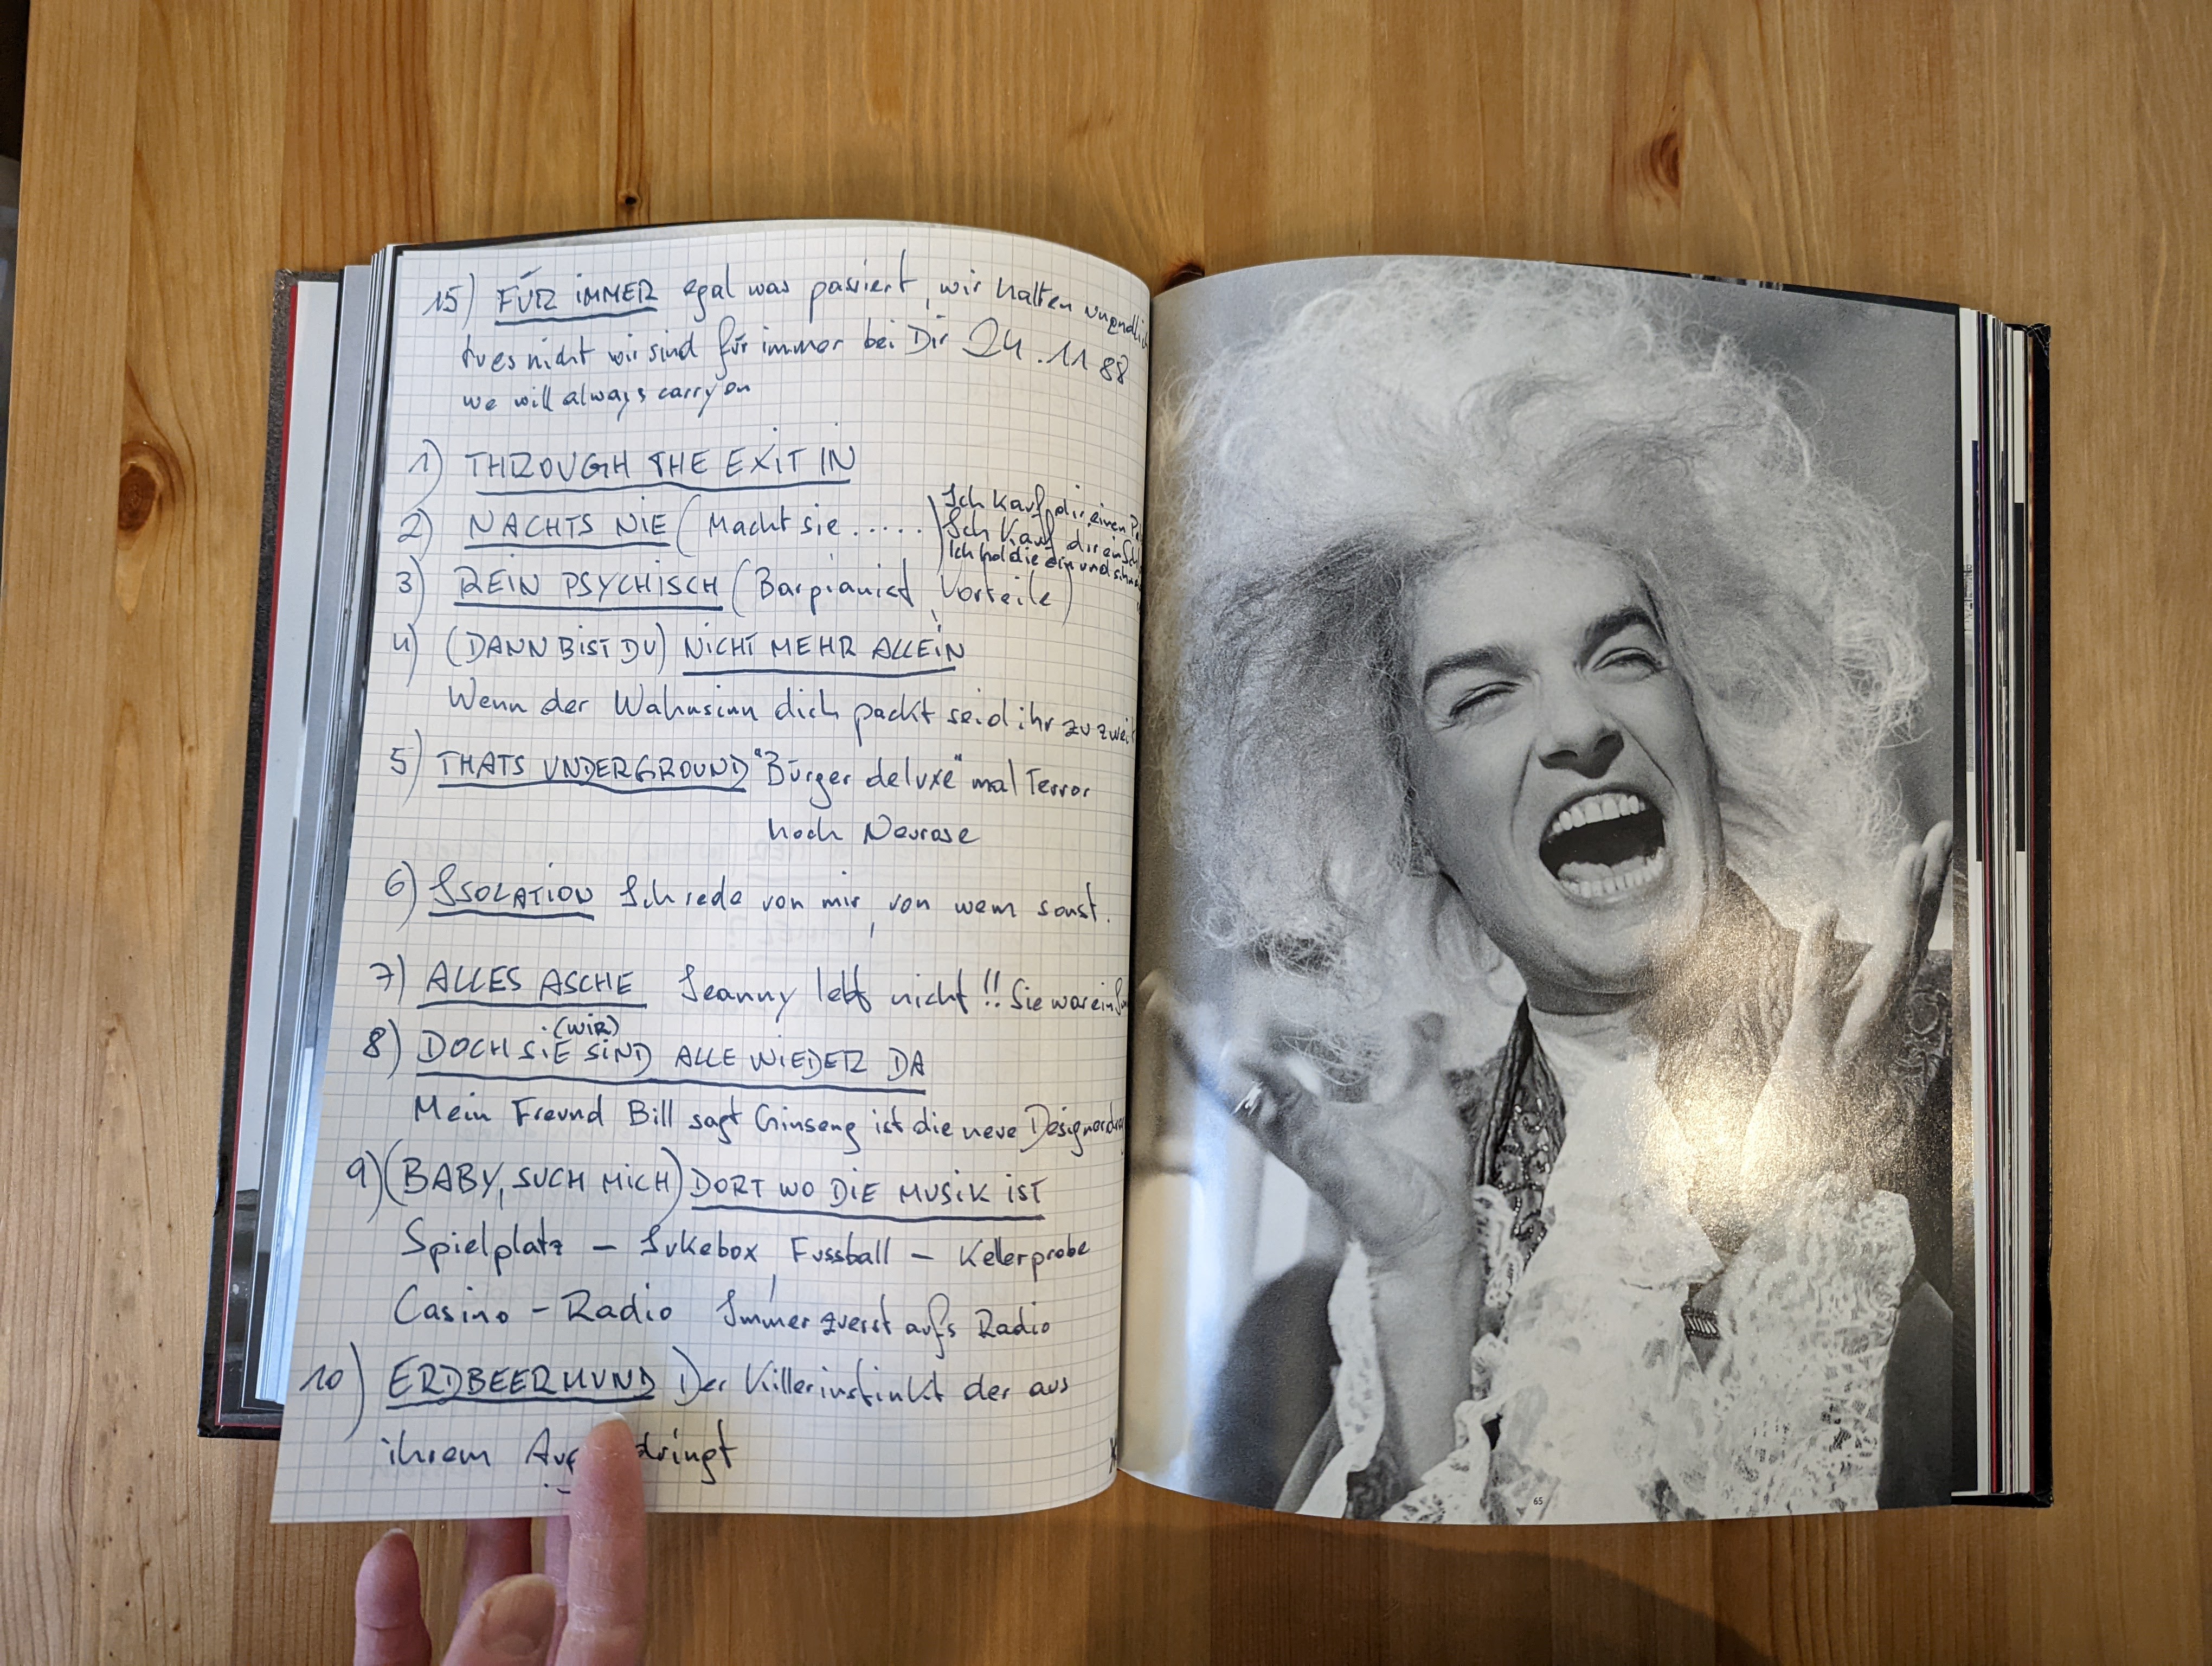 15) FÜR IMMER egal was passiert, wir halten unendlich
tu es nicht wir sind für immer bei Dir 24.11 88
we will always carry on
1) THROUGH THE EXIT IN
2) NACHTS NIE (Macht sie.....) Ich kauf dir einen
Ich Kauf dir ein
Ich hol die ein und
3) REIN PSYCHISCH (Barpianist, Vorteile)
4) (DANN BIST DU) NICHT MEHR ALLEIN
Wenn der Wahnsinn dich packt seid ihr zu zweit
5) THATS UNDERGROUND "Bürger deluxe" mal Terror
hoch Neurose
6) ISOLATION Ich rede von mir, von wem sonst.
7) ALLES ASCHE Jeanny lebt nicht!! Sie war ein
(WIR)
8) DOCH SIE SIND ALLE WIEDER DA
Mein Freund Bill sagt Ginseng ist die neue Designerdrog
9) (BABY, SUCH MICH) DORT WO DIE MUSIK IST
Spielplatz – Jukebox, Fussball – Kellerprobe
Casino – Radio Immer zuerst aufs Radio
10) ERDBEERMUND Der Killerinstinkt der aus
ihrem dringt
65